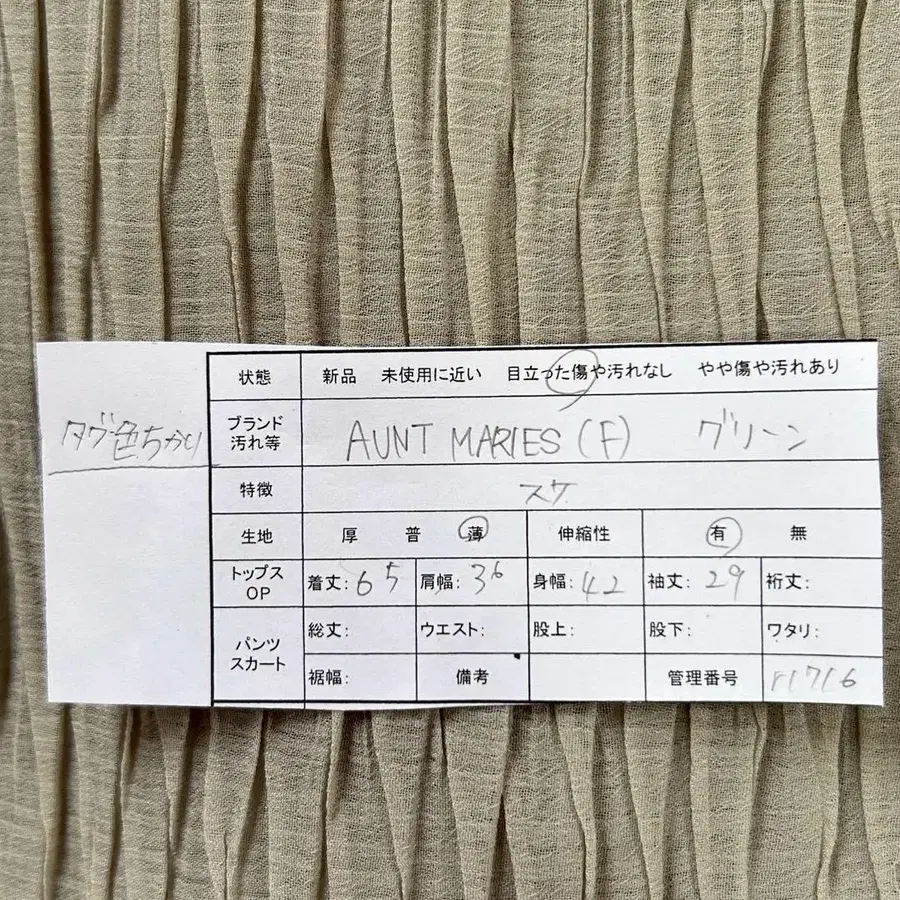 タグ色ちがい
状態 新品 未使用に近い 目立った傷や汚れなし やや傷や汚れあり
ブランド 汚れ等 AUNT MARIES (F) グリーン
特徴 スケ
生地 厚 普 薄 伸縮性 有 無
トップス OP 着丈: 65 肩幅: 36 身幅: 42 袖丈: 29 裄丈:
パンツ スカート 総丈: ウエスト: 股上: 股下: ワタリ:
裾幅: 備考 管理番号